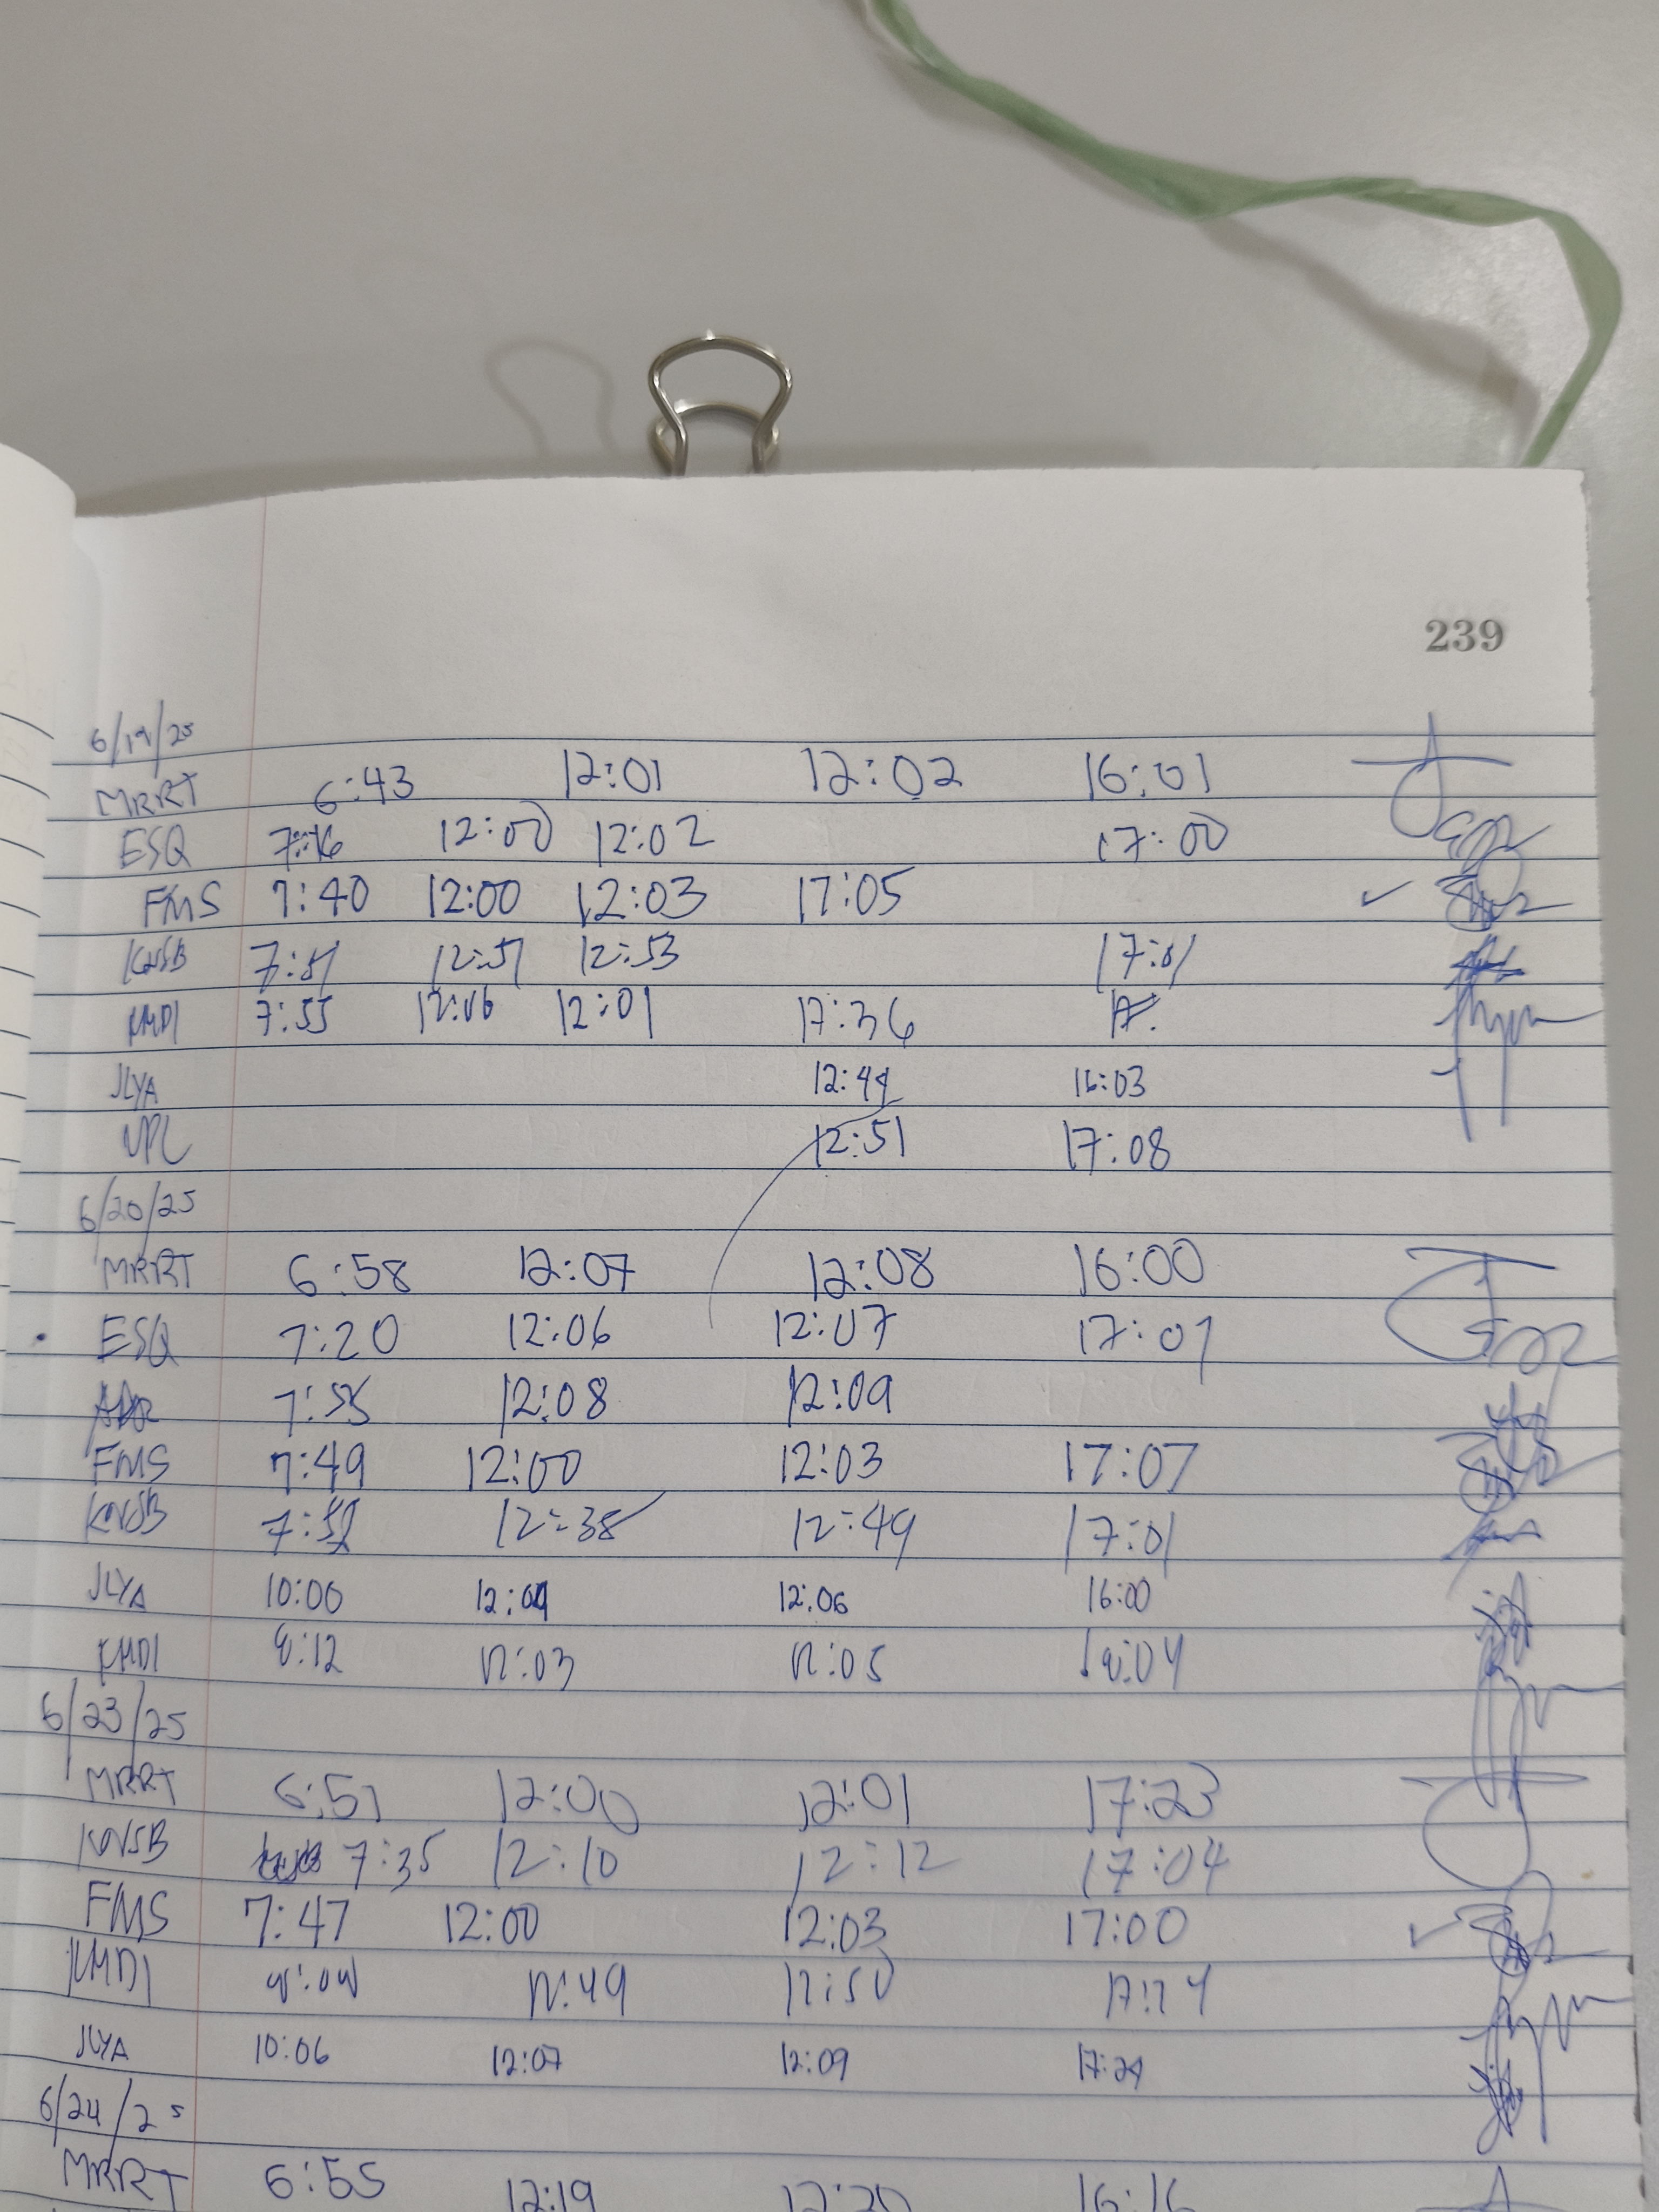 239
6/19/25
MRRT 6:43 12:01 12:02 16:01
ESQ 7:16 12:00 12:02 17:00
FMS 7:40 12:00 12:03 17:05 ✓
KNSB 7:51 12:51 12:53 17:01
KMDI 7:55 12:06 12:01 17:36
JLYA 12:44 16:03
VPL 12:51 17:08
6/20/25
MRRT 6:58 12:07 12:08 16:00
ESQ 7:20 12:06 12:07 17:01
7:55 12:08 12:09
FMS 7:49 12:00 12:03 17:07
KNSB 12:38 12:49 17:01
JLYA 10:00 12:04 12:06 16:00
KMDI 8:12 12:03 12:05 18:04
6/23/25
MRRT 6:51 12:00 12:01 17:23
KNSB 7:35 12:10 12:12 17:04
FMS 7:47 12:00 12:03 17:00 ✓
KMDI 12:49 12:50 17:24
JLYA 10:06 12:07 12:09 17:24
6/24/25
MRRT 6:55 12:19 12:20 16:16